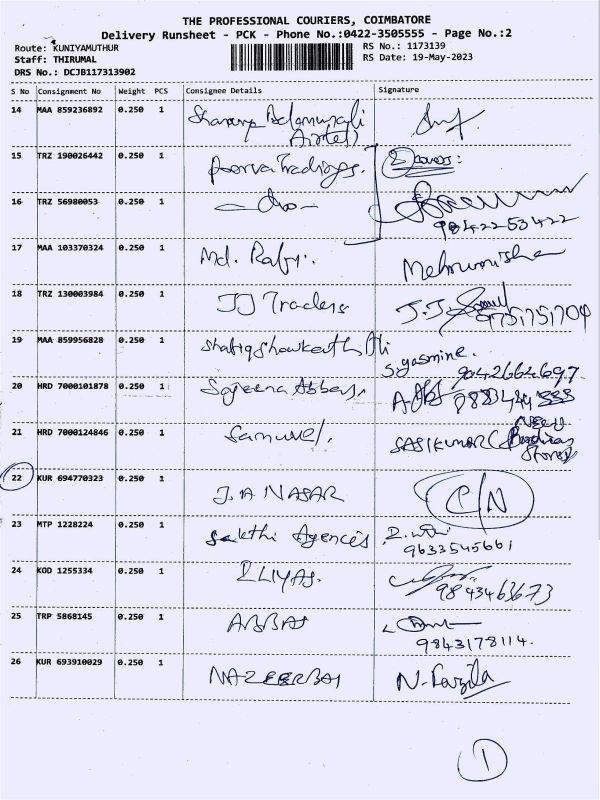 THE PROFESSIONAL COURIERS, COIMBATORE
Delivery Runsheet - PCK - Phone No.:0422-3505555 - Page No.:2
Route: KUNIYAMUTHUR RS No.: 1173139
Staff: THIRUMAL RS Date: 19-May-2023
DRS No.: DCJB117313902
S No Consignment No Weight PCS Consignee Details Signature
14 MAA 859236892 0.250 1
15 TRZ 190026442 0.250 1 Poorva Tradings. 2 covers:
16 TRZ 56980053 0.250 1 -do-
98422 53422
17 MAA 103370324 0.250 1 Md. Rafi. Mehrunisha
18 TRZ 130003984 0.250 1 JJ Traders J.J
9751751704
19 MAA 859956828 0.250 1 Ali S.yasmine.
9042664697
20 HRD 7000101878 0.250 1
21 HRD 7000124846 0.250 1 Samuvel. SASIKUMAR
Stores
22 KUR 694770323 0.250 1 J.A NASAR C/N
23 MTP 1228224 0.250 1 Sakthi Agences
9633545661
24 KOD 1255334 0.250 1 ILIYAS.
9843463673
25 TRP 5868145 0.250 1 ABBAS
9843178114.
26 KUR 693910029 0.250 1 NAZEERBAI N. Fazila
1